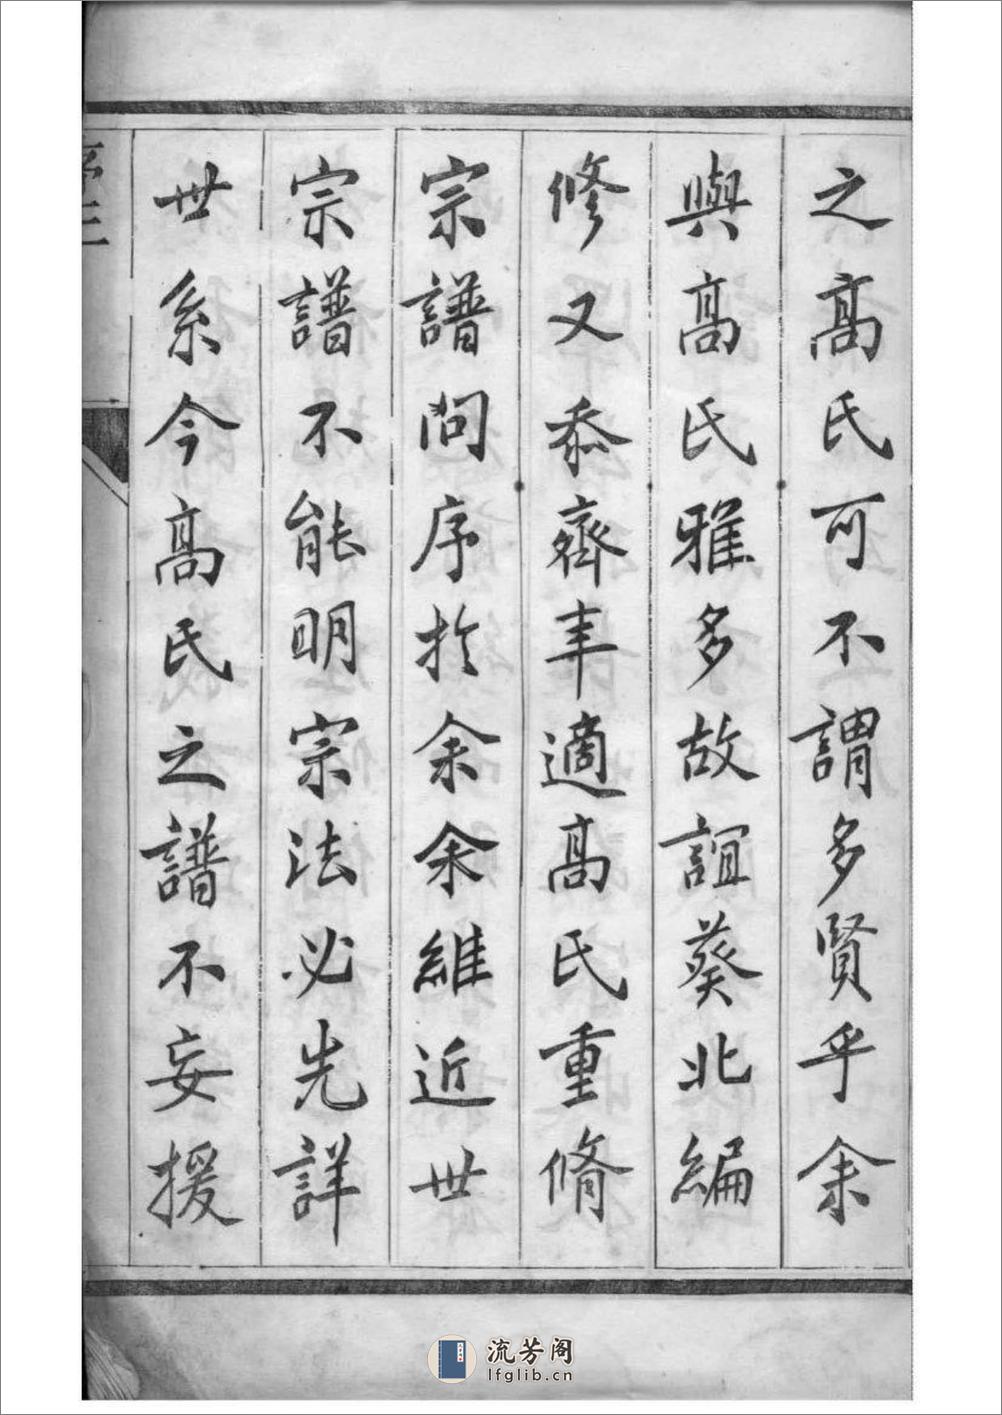 之髙氏可不謂多賢乎余
與髙氏雅多故誼葵北編
修又忝齊年適髙氏重脩
宗譜問序於余余維近世
宗譜不能明宗法必先詳
世系今髙氏之譜不妄援
序三
流芳阁
lfglib.cn